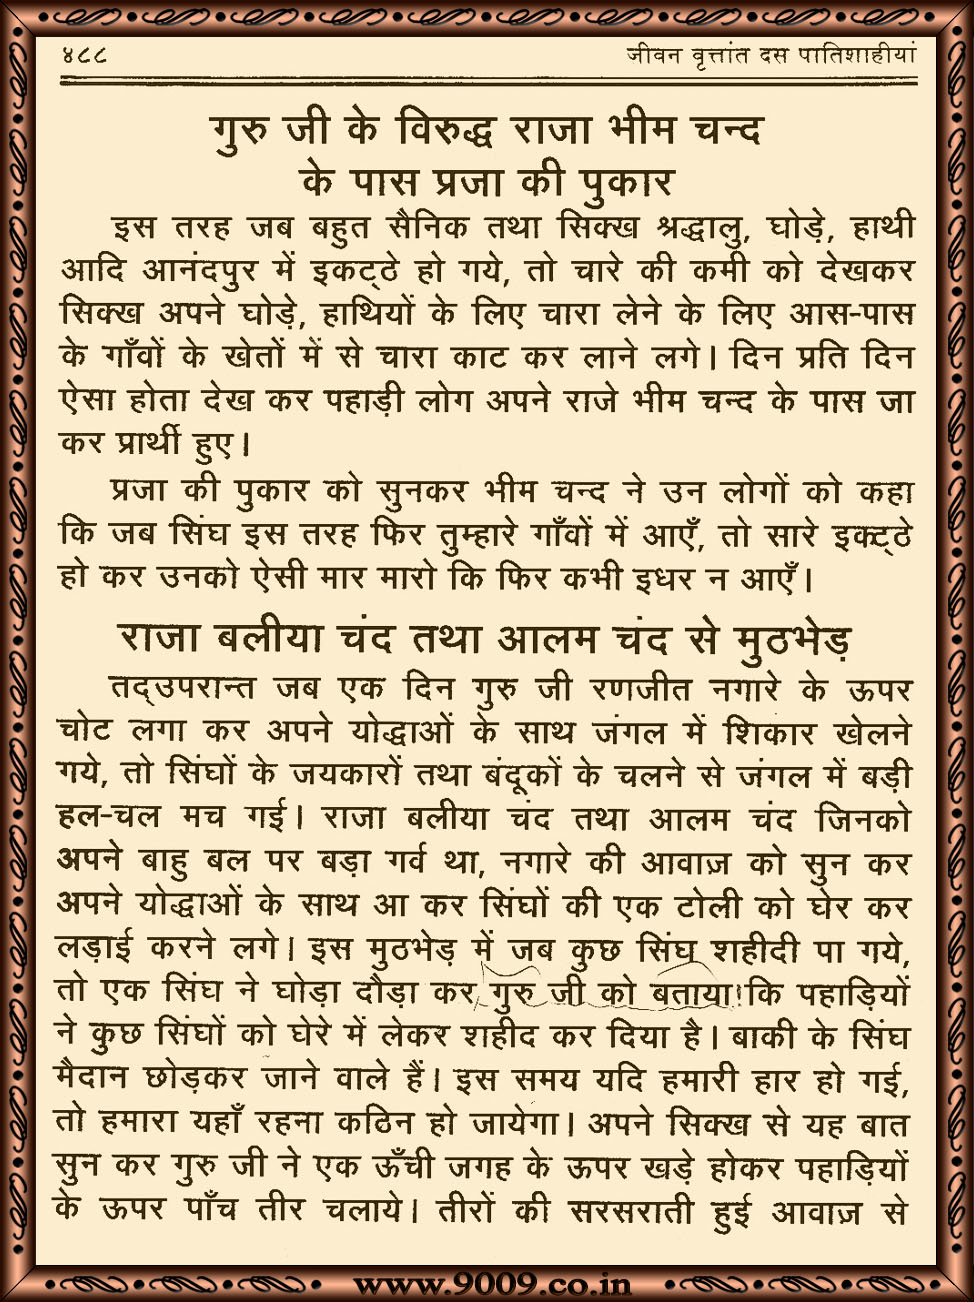 ४८८ जीवन वृत्तांत दस पातिशाहीयां
गुरु जी के विरुद्ध राजा भीम चन्द
के पास प्रजा की पुकार
इस तरह जब बहुत सैनिक तथा सिक्ख श्रद्धालु, घोड़े, हाथी
आदि आनंदपुर में इकट्ठे हो गये, तो चारे की कमी को देखकर
सिक्ख अपने घोड़े, हाथियों के लिए चारा लेने के लिए आस-पास
के गाँवों के खेतों में से चारा काट कर लाने लगे। दिन प्रति दिन
ऐसा होता देख कर पहाड़ी लोग अपने राजे भीम चन्द के पास जा
कर प्रार्थी हुए।
प्रजा की पुकार को सुनकर भीम चन्द ने उन लोगों को कहा
कि जब सिंघ इस तरह फिर तुम्हारे गाँवों में आएँ, तो सारे इक्ट्ठे
हो कर उनको ऐसी मार मारो कि फिर कभी इधर न आएँ।
राजा बलीया चंद तथा आलम चंद से मुठभेड़
तद्उपरान्त जब एक दिन गुरु जी रणजीत नगारे के ऊपर
चोट लगा कर अपने योद्धाओं के साथ जंगल में शिकार खेलने
गये, तो सिंघों के जयकारों तथा बंदूकों के चलने से जंगल में बड़ी
हल-चल मच गई। राजा बलीया चंद तथा आलम चंद जिनको
अपने बाहु बल पर बड़ा गर्व था, नगारे की आवाज़ को सुन कर
अपने योद्धाओं के साथ आ कर सिंघों की एक टोली को घेर कर
लड़ाई करने लगे। इस मुठभेड़ में जब कुछ सिंघ शहीदी पा गये,
तो एक सिंघ ने घोड़ा दौड़ा कर गुरु जी को बताया कि पहाड़ियों
ने कुछ सिंघों को घेरे में लेकर शहीद कर दिया है। बाकी के सिंघ
मैदान छोड़कर जाने वाले हैं। इस समय यदि हमारी हार हो गई,
तो हमारा यहाँ रहना कठिन हो जायेगा। अपने सिक्ख से यह बात
सुन कर गुरु जी ने एक ऊँची जगह के ऊपर खड़े होकर पहाड़ियों
के ऊपर पाँच तीर चलाये। तीरों की सरसराती हुई आवाज़ से
www.9009.co.in